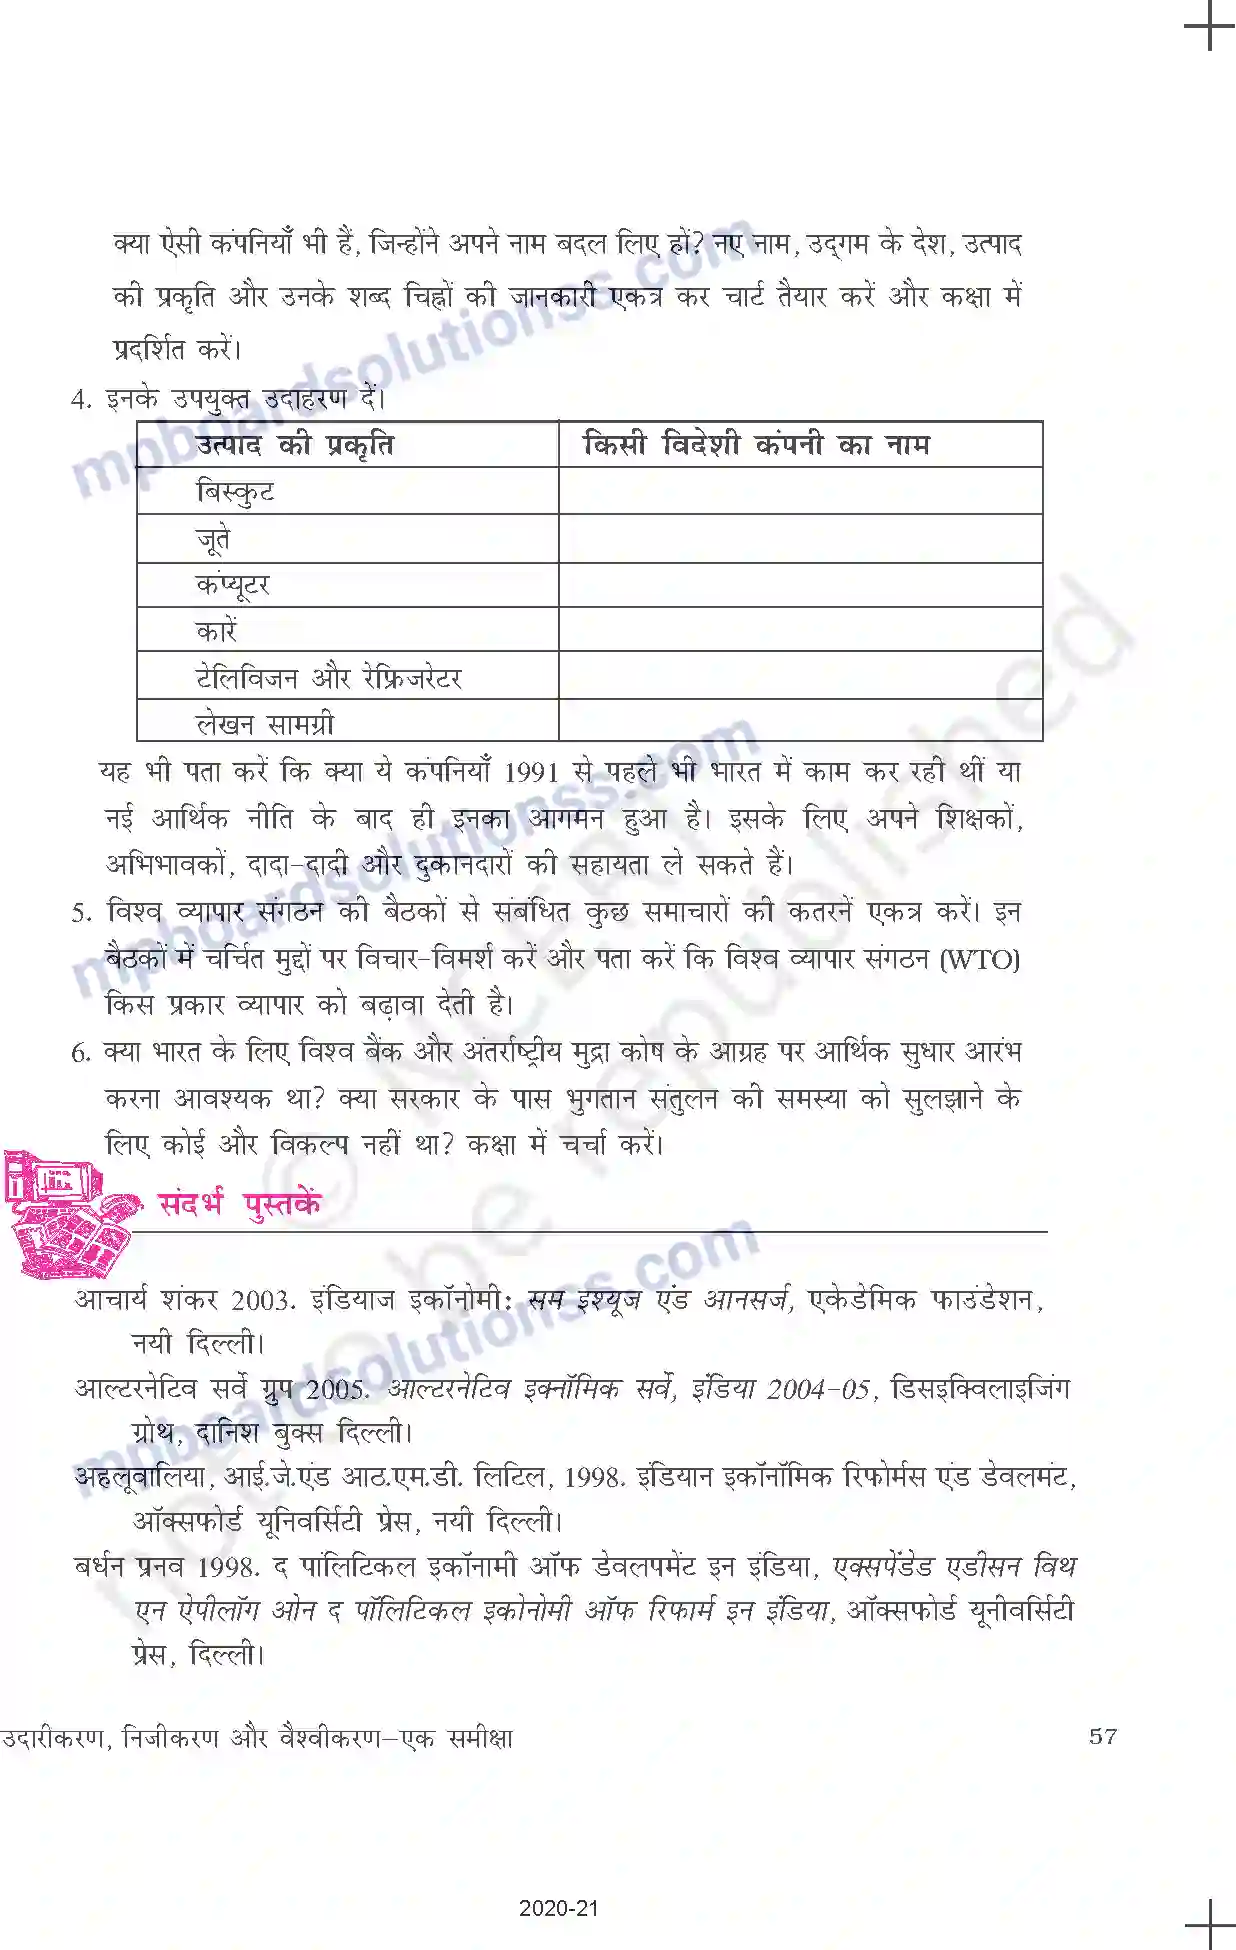 क्या ऐसी कंपनियाँ भी हैं, जिन्होंने अपने नाम बदल लिए हों? नए नाम, उद्गम के देश, उत्पाद
की प्रकृति और उनके शब्द चिह्नों की जानकारी एकत्र कर चार्ट तैयार करें और कक्षा में
प्रदर्शित करें।
4. इनके उपयुक्त उदाहरण दें।
उत्पाद की प्रकृति किसी विदेशी कंपनी का नाम
बिस्कुट
जूते
कंप्यूटर
कारें
टेलिविजन और रेफ्रिजरेटर
लेखन सामग्री
यह भी पता करें कि क्या ये कंपनियाँ 1991 से पहले भी भारत में काम कर रही थीं या
नई आर्थिक नीति के बाद ही इनका आगमन हुआ है। इसके लिए अपने शिक्षकों,
अभिभावकों, दादा-दादी और दुकानदारों की सहायता ले सकते हैं।
5. विश्व व्यापार संगठन की बैठकों से संबंधित कुछ समाचारों की कतरनें एकत्र करें। इन
बैठकों में चर्चित मुद्दों पर विचार-विमर्श करें और पता करें कि विश्व व्यापार संगठन (WTO)
किस प्रकार व्यापार को बढ़ावा देती है।
6. क्या भारत के लिए विश्व बैंक और अंतर्राष्ट्रीय मुद्रा कोष के आग्रह पर आर्थिक सुधार आरंभ
करना आवश्यक था? क्या सरकार के पास भुगतान संतुलन की समस्या को सुलझाने के
लिए कोई और विकल्प नहीं था? कक्षा में चर्चा करें।
संदर्भ पुस्तकें
आचार्य शंकर 2003. इंडियाज इकॉनोमी: सम इश्यूज एंड आनसर्ज, एकेडेमिक फाउंडेशन,
नयी दिल्ली।
आल्टरनेटिव सर्वे ग्रुप 2005. आल्टरनेटिव इक्नॉमिक सर्वे, इंडिया 2004-05, डिसइक्विलाइजिंग
ग्रोथ, दानिश बुक्स दिल्ली।
अहलूवालिया, आई.जे.एंड आठ.एम.डी. लिटिल, 1998. इंडियान इकॉनॉमिक रिफोर्मस एंड डेवलमंट,
ऑक्सफोर्ड यूनिवर्सिटी प्रेस, नयी दिल्ली।
बर्धन प्रनव 1998. द पांलिटिकल इकॉनामी ऑफ डेवलपमेंट इन इंडिया, एक्सपेंडेड एडीसन विथ
एन ऐपीलॉग ओन द पॉलिटिकल इकोनोमी ऑफ रिफार्म इन इंडिया, ऑक्सफोर्ड यूनीवर्सिटी
प्रेस, दिल्ली।
उदारीकरण, निजीकरण और वैश्वीकरण–एक समीक्षा 57
2020-21
mpboardsolutionss.com
mpboardsolutionss.com
mpboardsolutionss.com
© NCERT
not to be republished